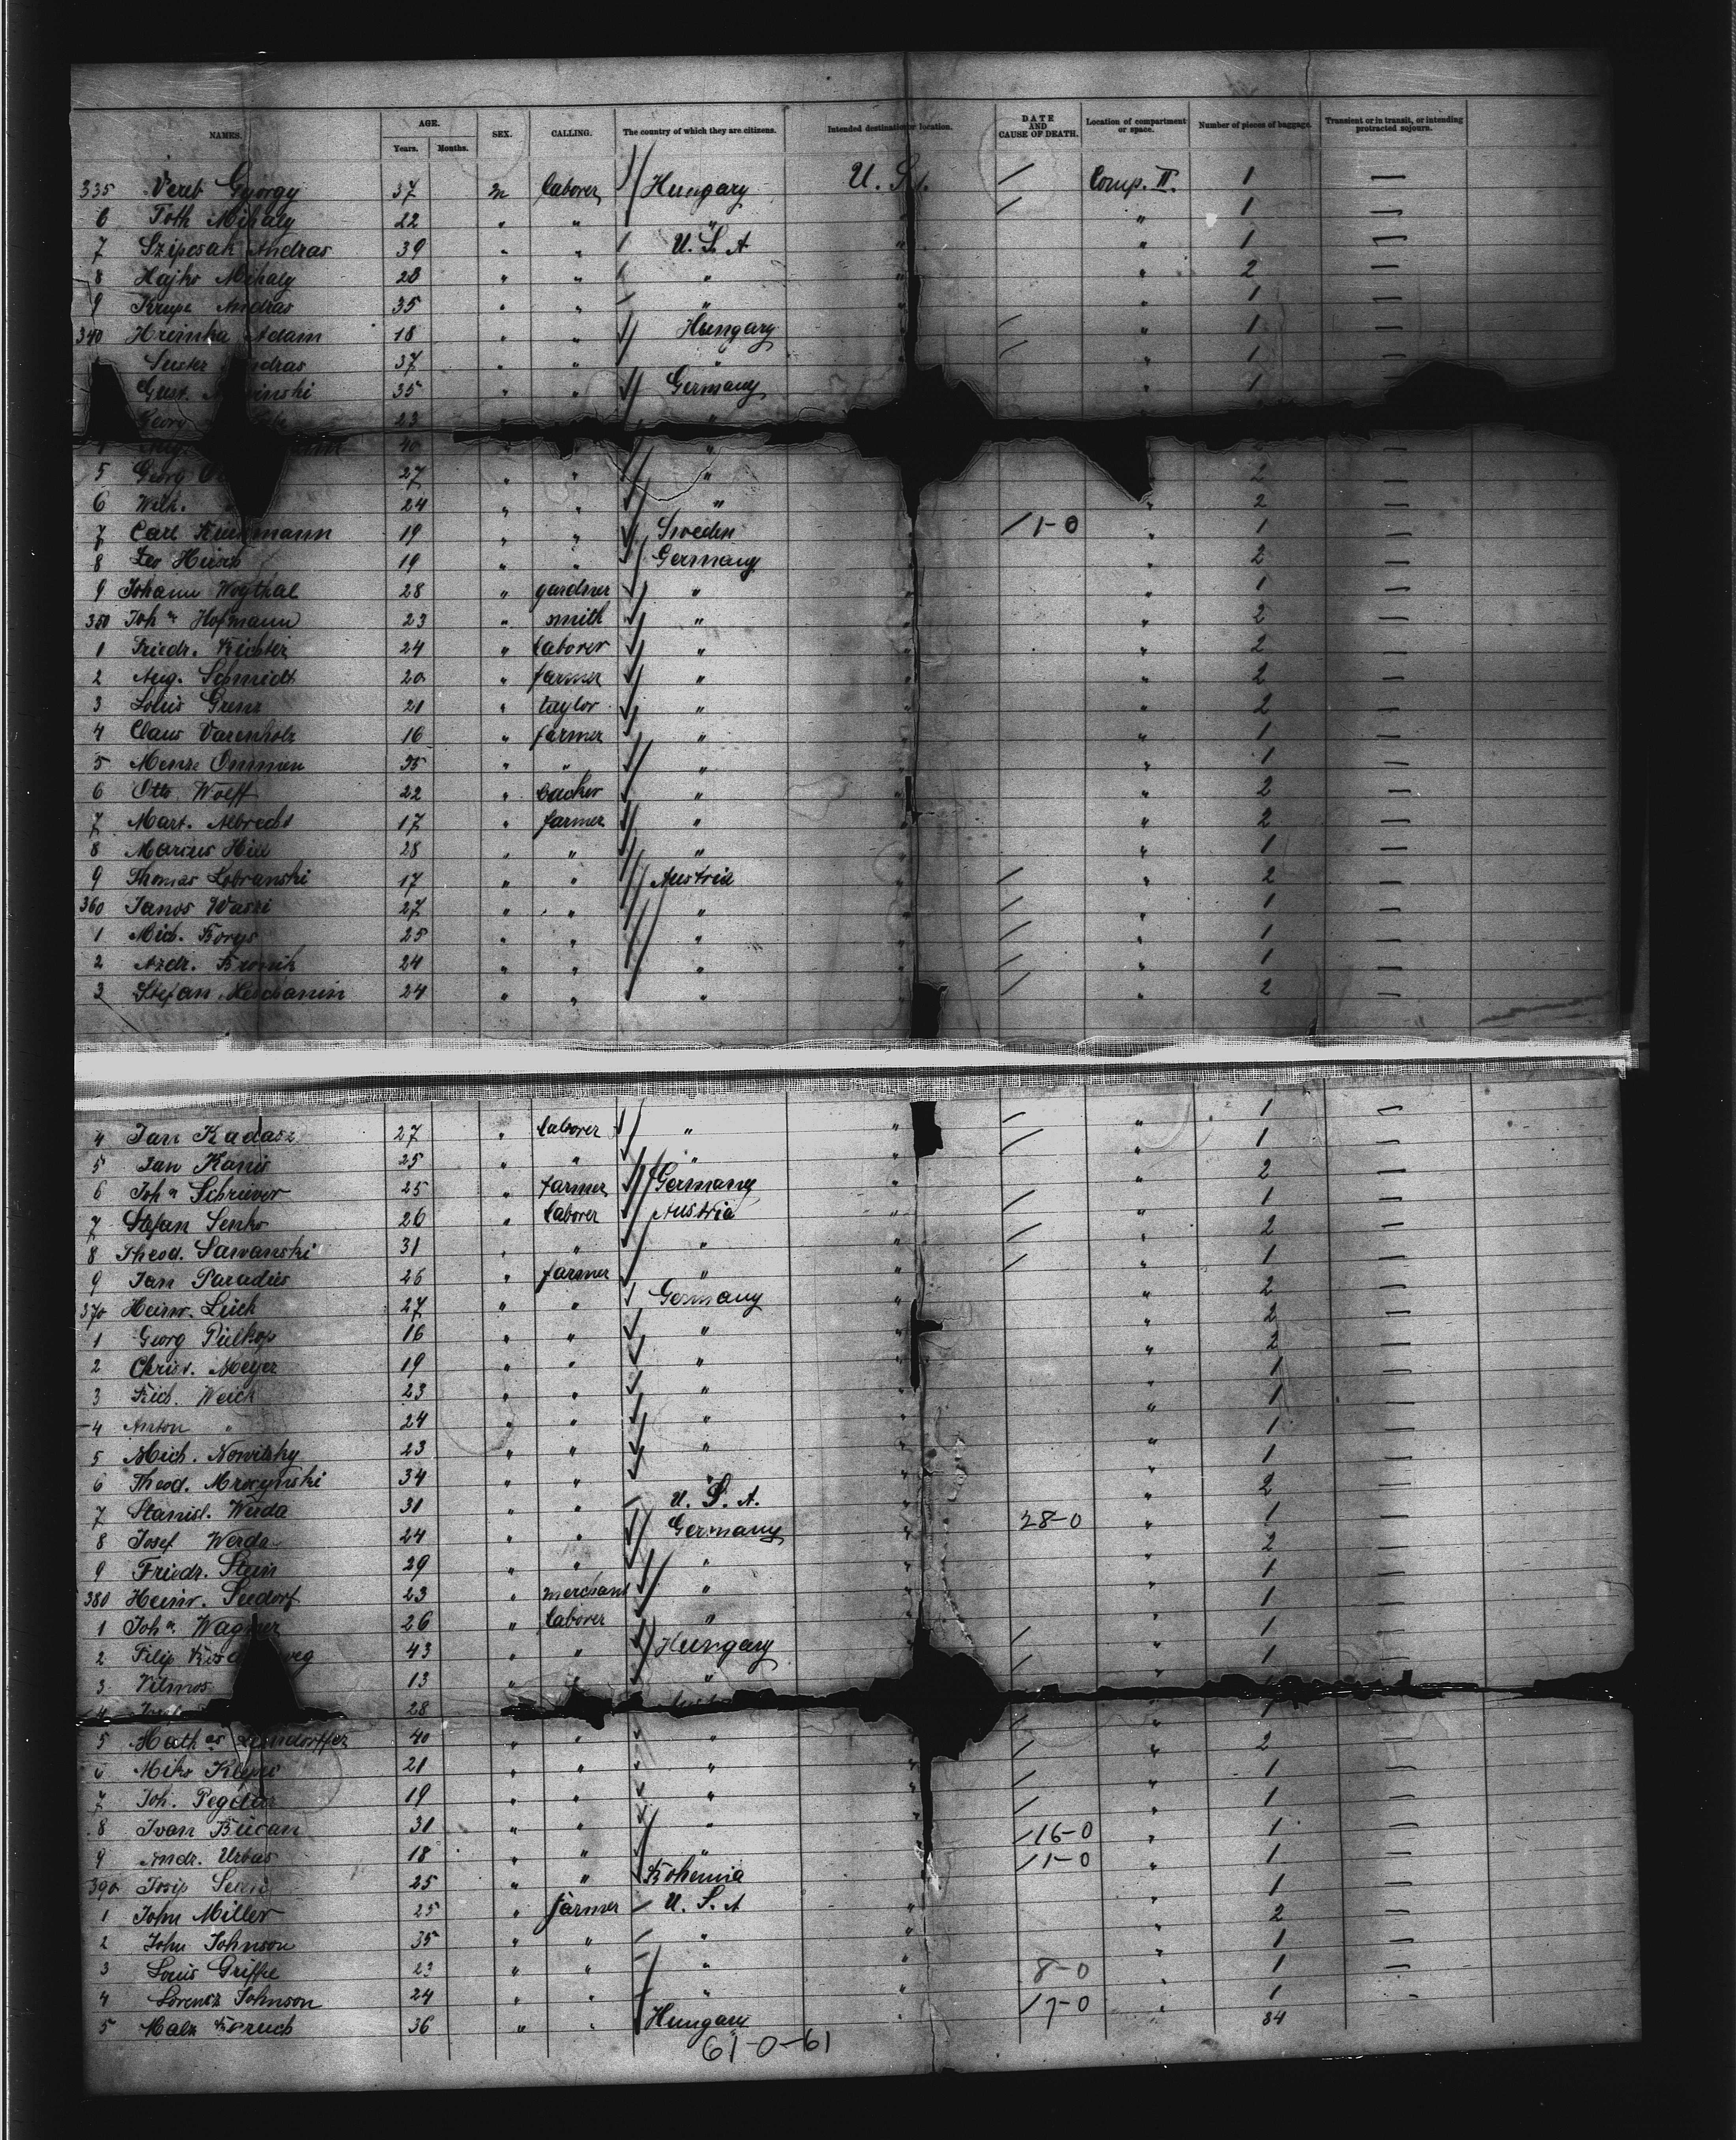 NAMES. AGE. Years. Months. SEX. CALLING. The country of which they are citizens. Intended destination or location. DATE AND CAUSE OF DEATH. Location of compartment or space. Number of pieces of baggage. Transient or in transit, or intending protracted sojourn.
335 Vereb Gyorgy 37 m laborer Hungary U. S. A. Comp. II. 1 —
6 Toth Mihaly 22 " " " " 1 —
7 Szipcsak Andras 39 " " U. S. A " " 1 —
8 Hajko Mihaly 28 " " " " " 2 —
9 Krupa Andras 35 " " " " " 1 —
340 Adam 18 " " Hungary " " 1 —
Suster Andras 37 " " " " " 1 —
Gust. 35 " " Germany " 1 —
Georg 23 "
40 " " 2 —
5 Georg 27 " " " 2 —
6 Wilh. 24 " " " " 2 —
7 Carl 19 " " Sweden " 1-0 " 1 —
8 Leo Hirsch 19 " " Germany " " 2 —
9 Johann Woythal 28 " gardner " " " 1 —
350 Joh n Hofmann 23 " smith " " " 2 —
1 Friedr. Richter 24 " laborer " " " 2 —
2 Aug. Schmidt 20 " farmer " " " 2 —
3 Louis Grenz 21 " taylor " " " 2 —
4 Claus Varenholz 16 " farmer " " " 1 —
5 Menze Ommen 35 " " " " " 1 —
6 Otto Wolff 22 " backer " " " 2 —
7 Mart. Albrecht 17 " farmer " " " 2 —
8 Marcus Hill 28 " " " " " 1 —
9 Thomas Lobranski 17 " " Austria " " 2 —
360 Janos Waski 27 " " " " " 1 —
1 Mich. Borys 25 " " " " " 1 —
2 Andr. Bronik 24 " " " " " 1 —
3 Stefan 24 " " " " " 2 —
4 Jan Kadasz 27 " laborer " " " 1 —
5 Jan Kanis 25 " " " " " 1
6 Joh n Schriever 25 " farmer Germany " " 2 —
7 Stefan Senko 26 " laborer Austria " " 1 —
8 Theod. Sawanski 31 " " " " " 2 —
9 Jan Paradies 26 " farmer " " " 1 —
370 Heinr. Leich 27 " " Germany " " 2 —
1 Georg Pielkop 16 " " " " " 2 —
2 Christ. Meyer 19 " " " " " 2 —
3 Rich. Weich 23 " " " " " 1 —
4 Anton " 24 " " " " " 1 —
5 Mich. Nowitzky 23 " " " " " 1 —
6 Theod. Mroczynski 34 " " " " 1 —
7 Stanisl. Werda 31 " " U. S. A. " 2 —
8 Josef Werda 24 " " Germany " 28-0 " 1 —
9 Friedr. Stein 29 " " " " 2 —
380 Heinr. Seedorf 23 " merchant " " 1 —
1 Joh n. Wagner 26 " laborer " " 1 —
2 Filip 43 " " Hungary " 1 —
3 Vilmos 13 " " "
4 28
5 40 " " " " 2 —
6 Miko 21 " " " " " 1 —
7 Joh. 19 " " " " " 1 —
8 Ivan 31 " " " 16-0 " 1 —
9 Andr. Urbas 18 " " " 11-0 " 1 —
390 Josip 25 " " Bohemia 1 —
1 John Miller 25 " farmer U. S. A " " 2 —
2 John Johnson 35 " " " " " 1 —
3 Louis Griffke 23 " " " " 8-0 " 1 —
4 Lorenz Johnson 24 " " " " 17-0 " 1 -
5 36 " " Hungary " 84
61-0-61